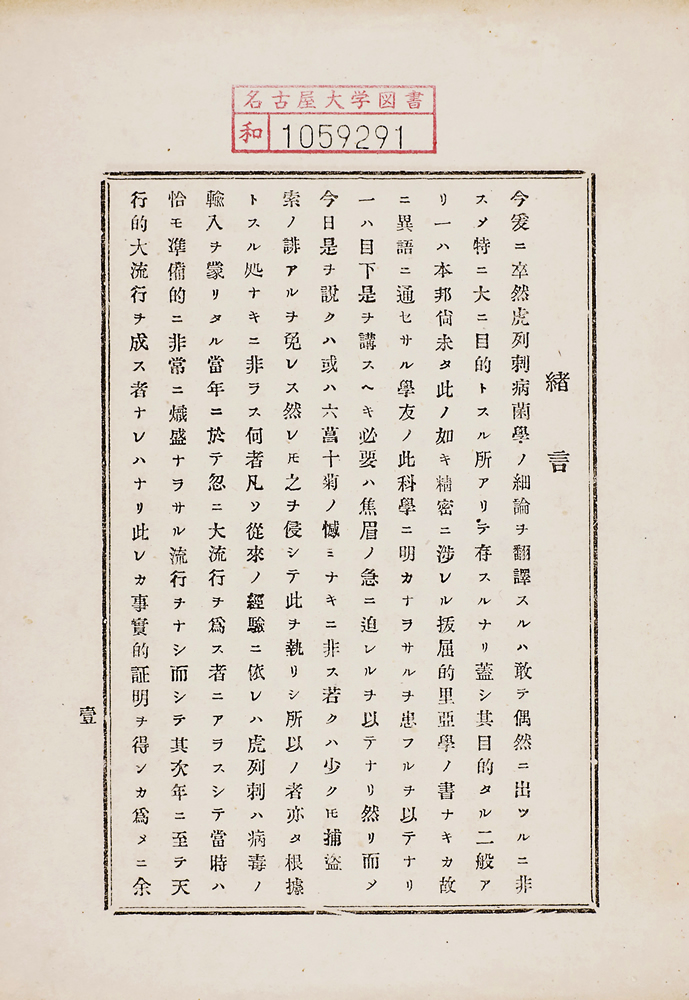 名古屋大学図書
和 1059291
緒言
今爰ニ卒然虎列刺病菌學ノ細論ヲ翻譯スルハ敢テ偶然ニ出ツルニ非
スメ特ニ大ニ目的トスル所アリテ存スルナリ蓋シ其目的タル二般ア
リ一ハ本邦尙未タ此ノ如キ精密ニ涉レル拔屈的里亞學ノ書ナキカ故
ニ異語ニ通セサル學友ノ此科學ニ明カナラサルヲ患フルヲ以テナリ
一ハ目下是ヲ講スヘキ必要ハ焦眉ノ急ニ迫レルヲ以テナリ然リ而メ
今日是ヲ説クハ或ハ六菖十菊ノ憾ミナキニ非ス若クハ少クモ捕盜
索ノ誹アルヲ免レス然レ𪜈之ヲ侵シテ此ヲ執リシ所以ノ者亦タ根據
トスル処ナキニ非ラス何者凡ソ從來ノ經驗ニ依レハ虎列刺ハ病毒ノ
輸入ヲ蒙リタル當年ニ於テ忽ニ大流行ヲ爲ス者ニアラスシテ當時ハ
恰モ準備的ニ非常ニ熾盛ナラサル流行ヲナシ而シテ其次年ニ至テ天
行的大流行ヲ成ス者ナレハナリ此レカ事實的証明ヲ得ンカ爲メニ余
壹